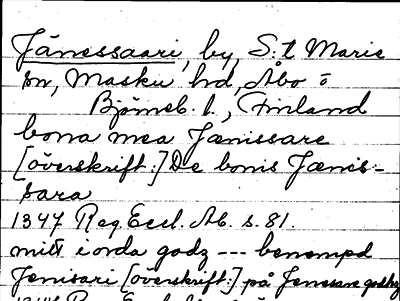 Jänessaari, by, S:t Marie
sn, Masku hd, Åbo o
Björneb. l., Finland
bona mea Jænissare
[överskrift:] De bonis Jænis-
sara
1347 Reg. Eccl. Ab. s. 81.
mitt iorda godz --- benempd
Jenisari [överskrift:] på Jenssare godhz